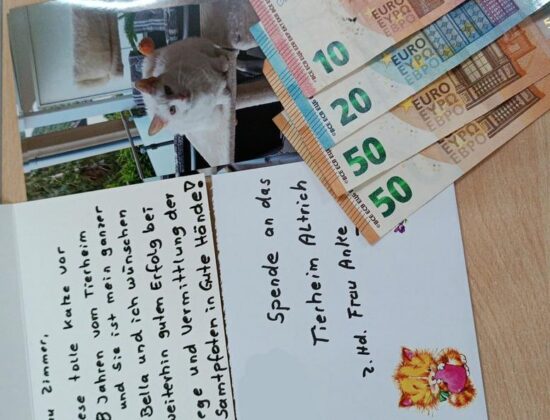 Zimmer,
tolle Katze vor
Jahren vom Tierheim
und sie ist mein ganzer
Bella und ich wünschen
weiterhin guten Erfolg bei
ege und Vermittlung der
Samtpfoten in Gute Hände!
Spende an das
Tierheim Altrich
z. Hd. Frau Anke
10
EURO
ΕΥΡΩ
ЕВРО
20
EURO
ΕΥΡΩ
ЕВРО
50
EURO
ΕΥΡΩ
ЕВРО
50
EURO
ΕΥΡΩ
ЕВРО